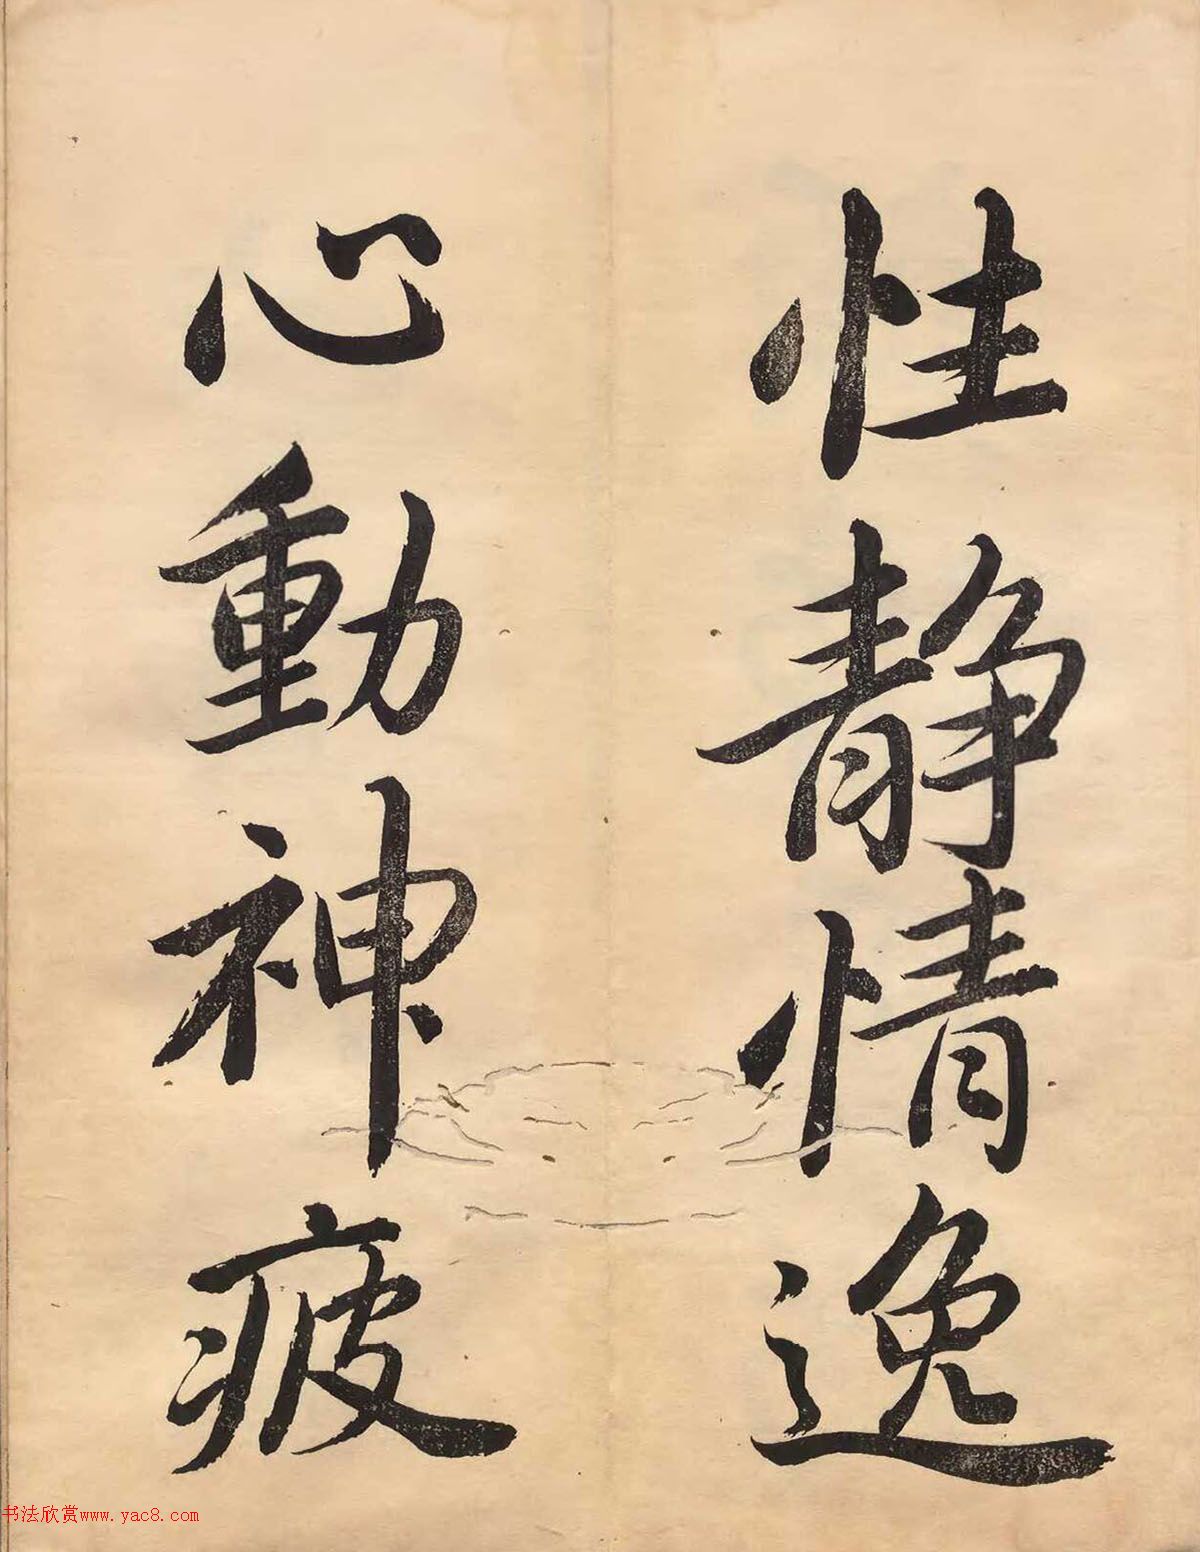 性静情逸
心動神疲
书法欣赏www.yac8.com